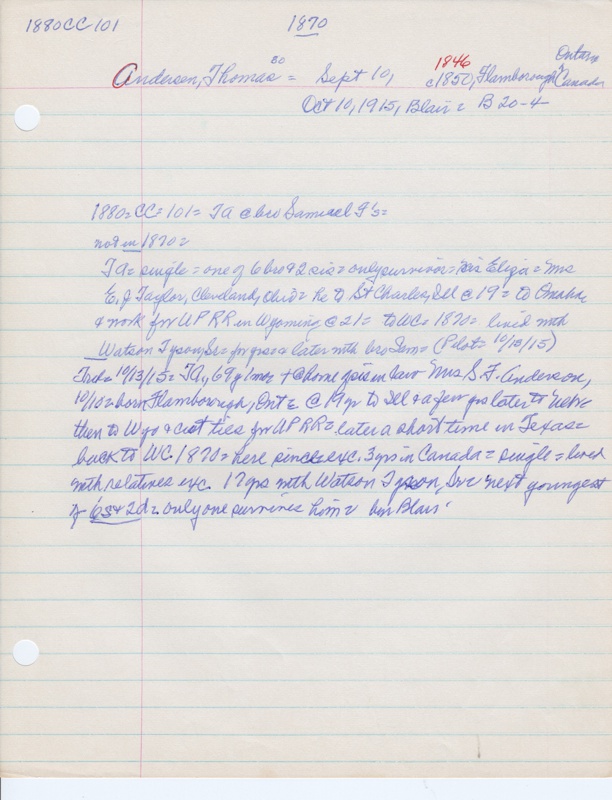 1880CC101
1870
Andersen, Thomas = Sept 10, 1846 c1850, Flamborough, Ontario Canada
Oct 10, 1915, Blair = B 20-4
1880=CC=101= TA @ bro Samuel F's=
not in 1870=
TA= single= one of 6 bro & 2 sis= only survivor= sis Eliza= Mrs
E.J Taylor, Cleveland, Ohio= he to St Charles, Ill @ 19= to Omaha
& work for UPRR in Wyoming @ 21= to WC= 1870= lived with
Watson Tyson, Sr= for yrs & later with bro Sam= (Pilot= 10/13/15)
Trib= 10/13/15= TA, 69y 1mo + @ home of sis in law Mrs S.F. Anderson,
10/10= born Flamborough, Ont= @ 19 yr to Ill & a few yrs later to Nebr
then to Wyo & cut ties for UPRR= later a short time in Texas=
back to WC. 1870= here since exc. 3 yrs in Canada= single= lived
with relatives exc. 17 yrs with Watson Tyson, Sr= next youngest
of 6s & 2d= only one survives him= bur Blair.